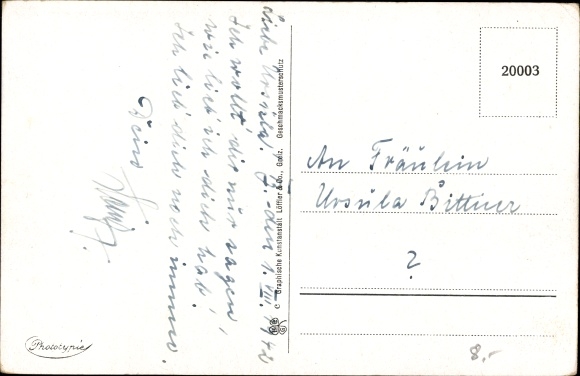 Liebe Ursula! G. den 1. VIII. 1942
Ich wollt' dir nur sagen,
wie lieb ich dich hab'!
Ich lieb' dich noch immer.
Dein
Graphische Kunstanstalt Löffler & Co., Greiz. Geschmacksmusterschutz
20003
An Fräulein
Ursula Bittner
?
Photocypie
8.-